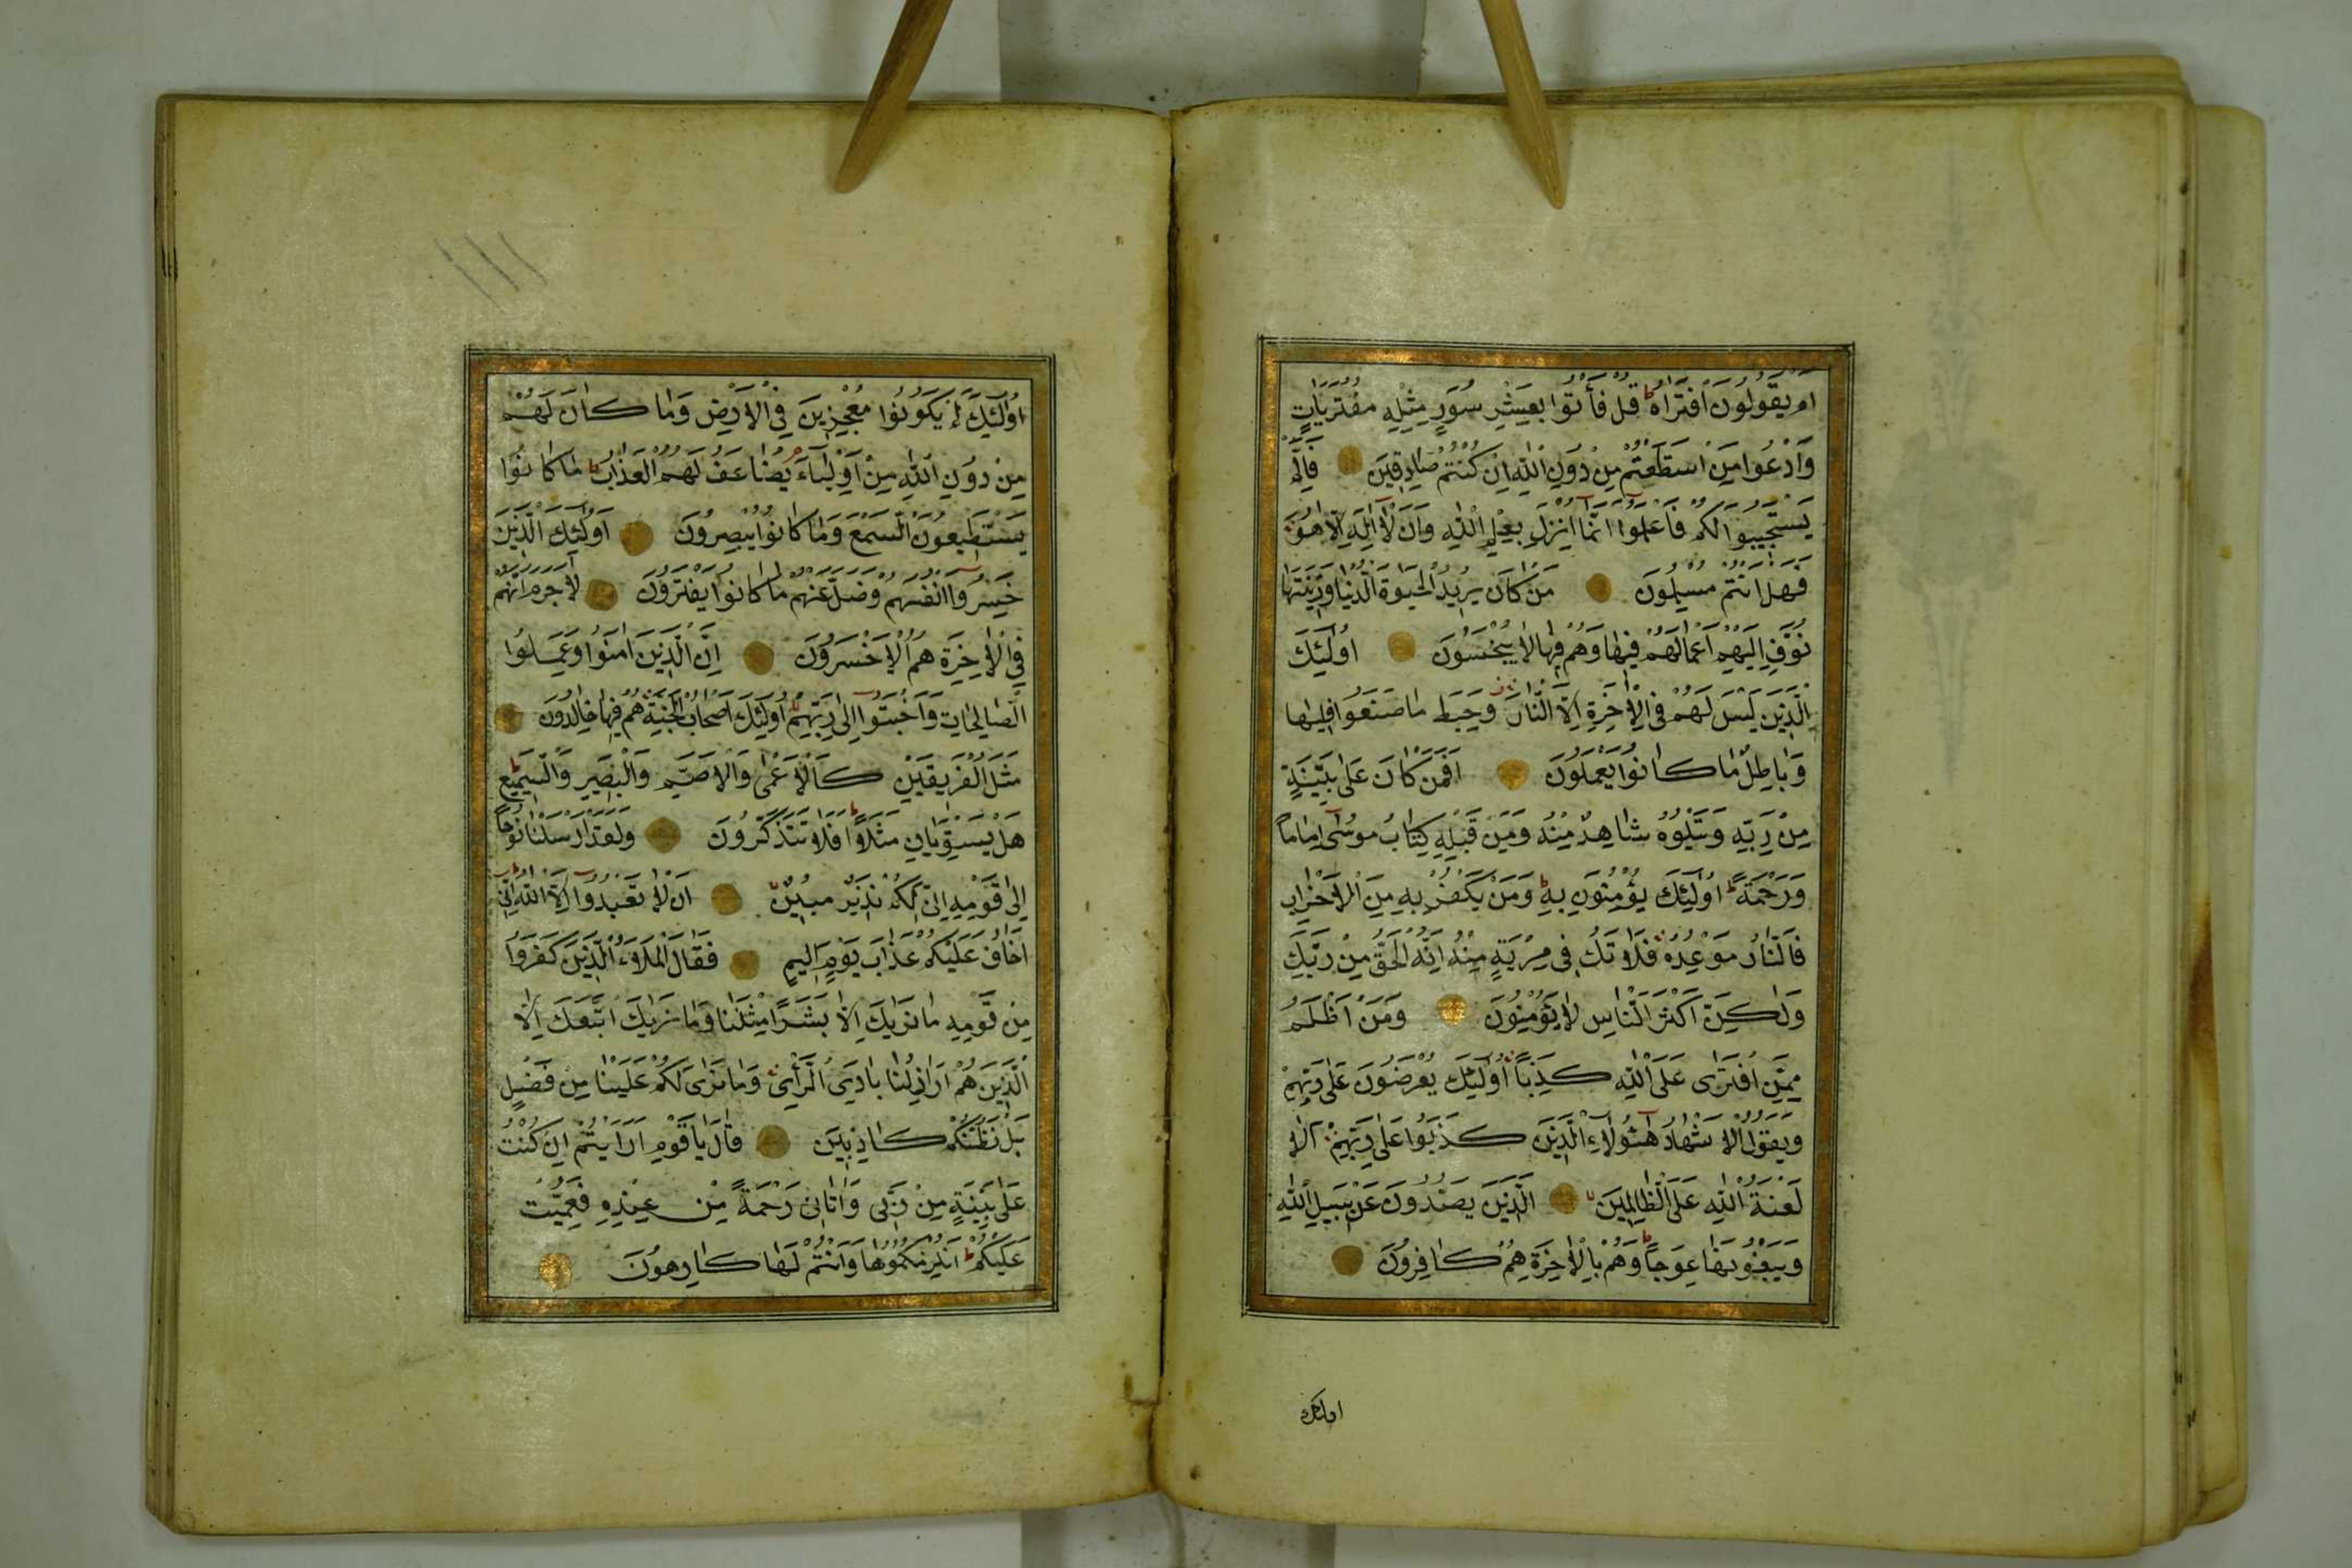 اَمْ يَقُولُونَ افْتَرَاهُ ط قُلْ فَأْتُوا بِعَشْرِ سُوَرٍ مِثْلِهِ مُفْتَرَيَاتٍ
وَادْعُوا مَنِ اسْتَطَعْتُمْ مِنْ دُونِ اللّٰهِ اِنْ كُنْتُمْ صَادِقِينَ فَاِلَّمْ
يَسْتَجِيبُوا لَكُمْ فَاعْلَمُوا اَنَّمَا اُنْزِلَ بِعِلْمِ اللّٰهِ وَاَنْ لَا اِلٰهَ اِلَّا هُوَ
فَهَلْ اَنْتُمْ مُسْلِمُونَ مَنْ كَانَ يُرِيدُ الْحَيٰوةَ الدُّنْيَا وَزِينَتَهَا
نُوَفِّ اِلَيْهِمْ اَعْمَالَهُمْ فِيهَا وَهُمْ فِيهَا لَا يُبْخَسُونَ اُولٰئِكَ
الَّذِينَ لَيْسَ لَهُمْ فِى الْاٰخِرَةِ اِلَّا النَّارُ وَحَبِطَ مَا صَنَعُوا فِيهَا
وَبَاطِلٌ مَا كَانُوا يَعْمَلُونَ اَفَمَنْ كَانَ عَلٰى بَيِّنَةٍ
مِنْ رَبِّهِ وَيَتْلُوهُ شَاهِدٌ مِنْهُ وَمِنْ قَبْلِهِ كِتَابُ مُوسٰى اِمَامًا
وَرَحْمَةً ط اُولٰئِكَ يُؤْمِنُونَ بِهِ ط وَمَنْ يَكْفُرْ بِهِ مِنَ الْاَحْزَابِ
فَالنَّارُ مَوْعِدُهُ فَلَا تَكُ فِى مِرْيَةٍ مِنْهُ اِنَّهُ الْحَقُّ مِنْ رَبِّكَ
وَلٰكِنَّ اَكْثَرَ النَّاسِ لَا يُؤْمِنُونَ وَمَنْ اَظْلَمُ
مِمَّنِ افْتَرٰى عَلَى اللّٰهِ كَذِبًا اُولٰئِكَ يُعْرَضُونَ عَلٰى رَبِّهِمْ
وَيَقُولُ الْاَشْهَادُ هٰؤُلَاءِ الَّذِينَ كَذَبُوا عَلٰى رَبِّهِمْ اَلَا
لَعْنَةُ اللّٰهِ عَلَى الظَّالِمِينَ الَّذِينَ يَصُدُّونَ عَنْ سَبِيلِ اللّٰهِ
وَيَبْغُونَهَا عِوَجًا ط وَهُمْ بِالْاٰخِرَةِ هُمْ كَافِرُونَ
اولئك
اُولٰئِكَ لَمْ يَكُونُوا مُعْجِزِينَ فِى الْاَرْضِ وَمَا كَانَ لَهُمْ
مِنْ دُونِ اللّٰهِ مِنْ اَوْلِيَاءَ يُضَاعَفُ لَهُمُ الْعَذَابُ ط مَا كَانُوا
يَسْتَطِيعُونَ السَّمْعَ وَمَا كَانُوا يُبْصِرُونَ اُولٰئِكَ الَّذِينَ
خَسِرُوا اَنْفُسَهُمْ وَضَلَّ عَنْهُمْ مَا كَانُوا يَفْتَرُونَ لَا جَرَمَ اَنَّهُمْ
فِى الْاٰخِرَةِ هُمُ الْاَخْسَرُونَ اِنَّ الَّذِينَ اٰمَنُوا وَعَمِلُوا
الصَّالِحَاتِ وَاَخْبَتُوا اِلٰى رَبِّهِمْ اُولٰئِكَ اَصْحَابُ الْجَنَّةِ هُمْ فِيهَا خَالِدُونَ
مَثَلُ الْفَرِيقَيْنِ كَالْاَعْمٰى وَالْاَصَمِّ وَالْبَصِيرِ وَالسَّمِيعِ ط
هَلْ يَسْتَوِيَانِ مَثَلًا ط اَفَلَا تَتَذَكَّرُونَ وَلَقَدْ اَرْسَلْنَا نُوحًا
اِلٰى قَوْمِهِ اِنِّى لَكُمْ نَذِيرٌ مُبِينٌ اَنْ لَا تَعْبُدُوا اِلَّا اللّٰهَ ط اِنِّى
اَخَافُ عَلَيْكُمْ عَذَابَ يَوْمٍ اَلِيمٍ فَقَالَ الْمَلَاُ الَّذِينَ كَفَرُوا
مِنْ قَوْمِهِ مَا نَرٰيكَ اِلَّا بَشَرًا مِثْلَنَا وَمَا نَرٰيكَ اتَّبَعَكَ اِلَّا
الَّذِينَ هُمْ اَرَاذِلُنَا بَادِىَ الرَّأْىِ وَمَا نَرٰى لَكُمْ عَلَيْنَا مِنْ فَضْلٍ
بَلْ نَظُنُّكُمْ كَاذِبِينَ قَالَ يَا قَوْمِ اَرَاَيْتُمْ اِنْ كُنْتُ
عَلٰى بَيِّنَةٍ مِنْ رَبِّى وَاٰتَانِى رَحْمَةً مِنْ عِنْدِهِ فَعُمِّيَتْ
عَلَيْكُمْ ط اَنُلْزِمُكُمُوهَا وَاَنْتُمْ لَهَا كَارِهُونَ